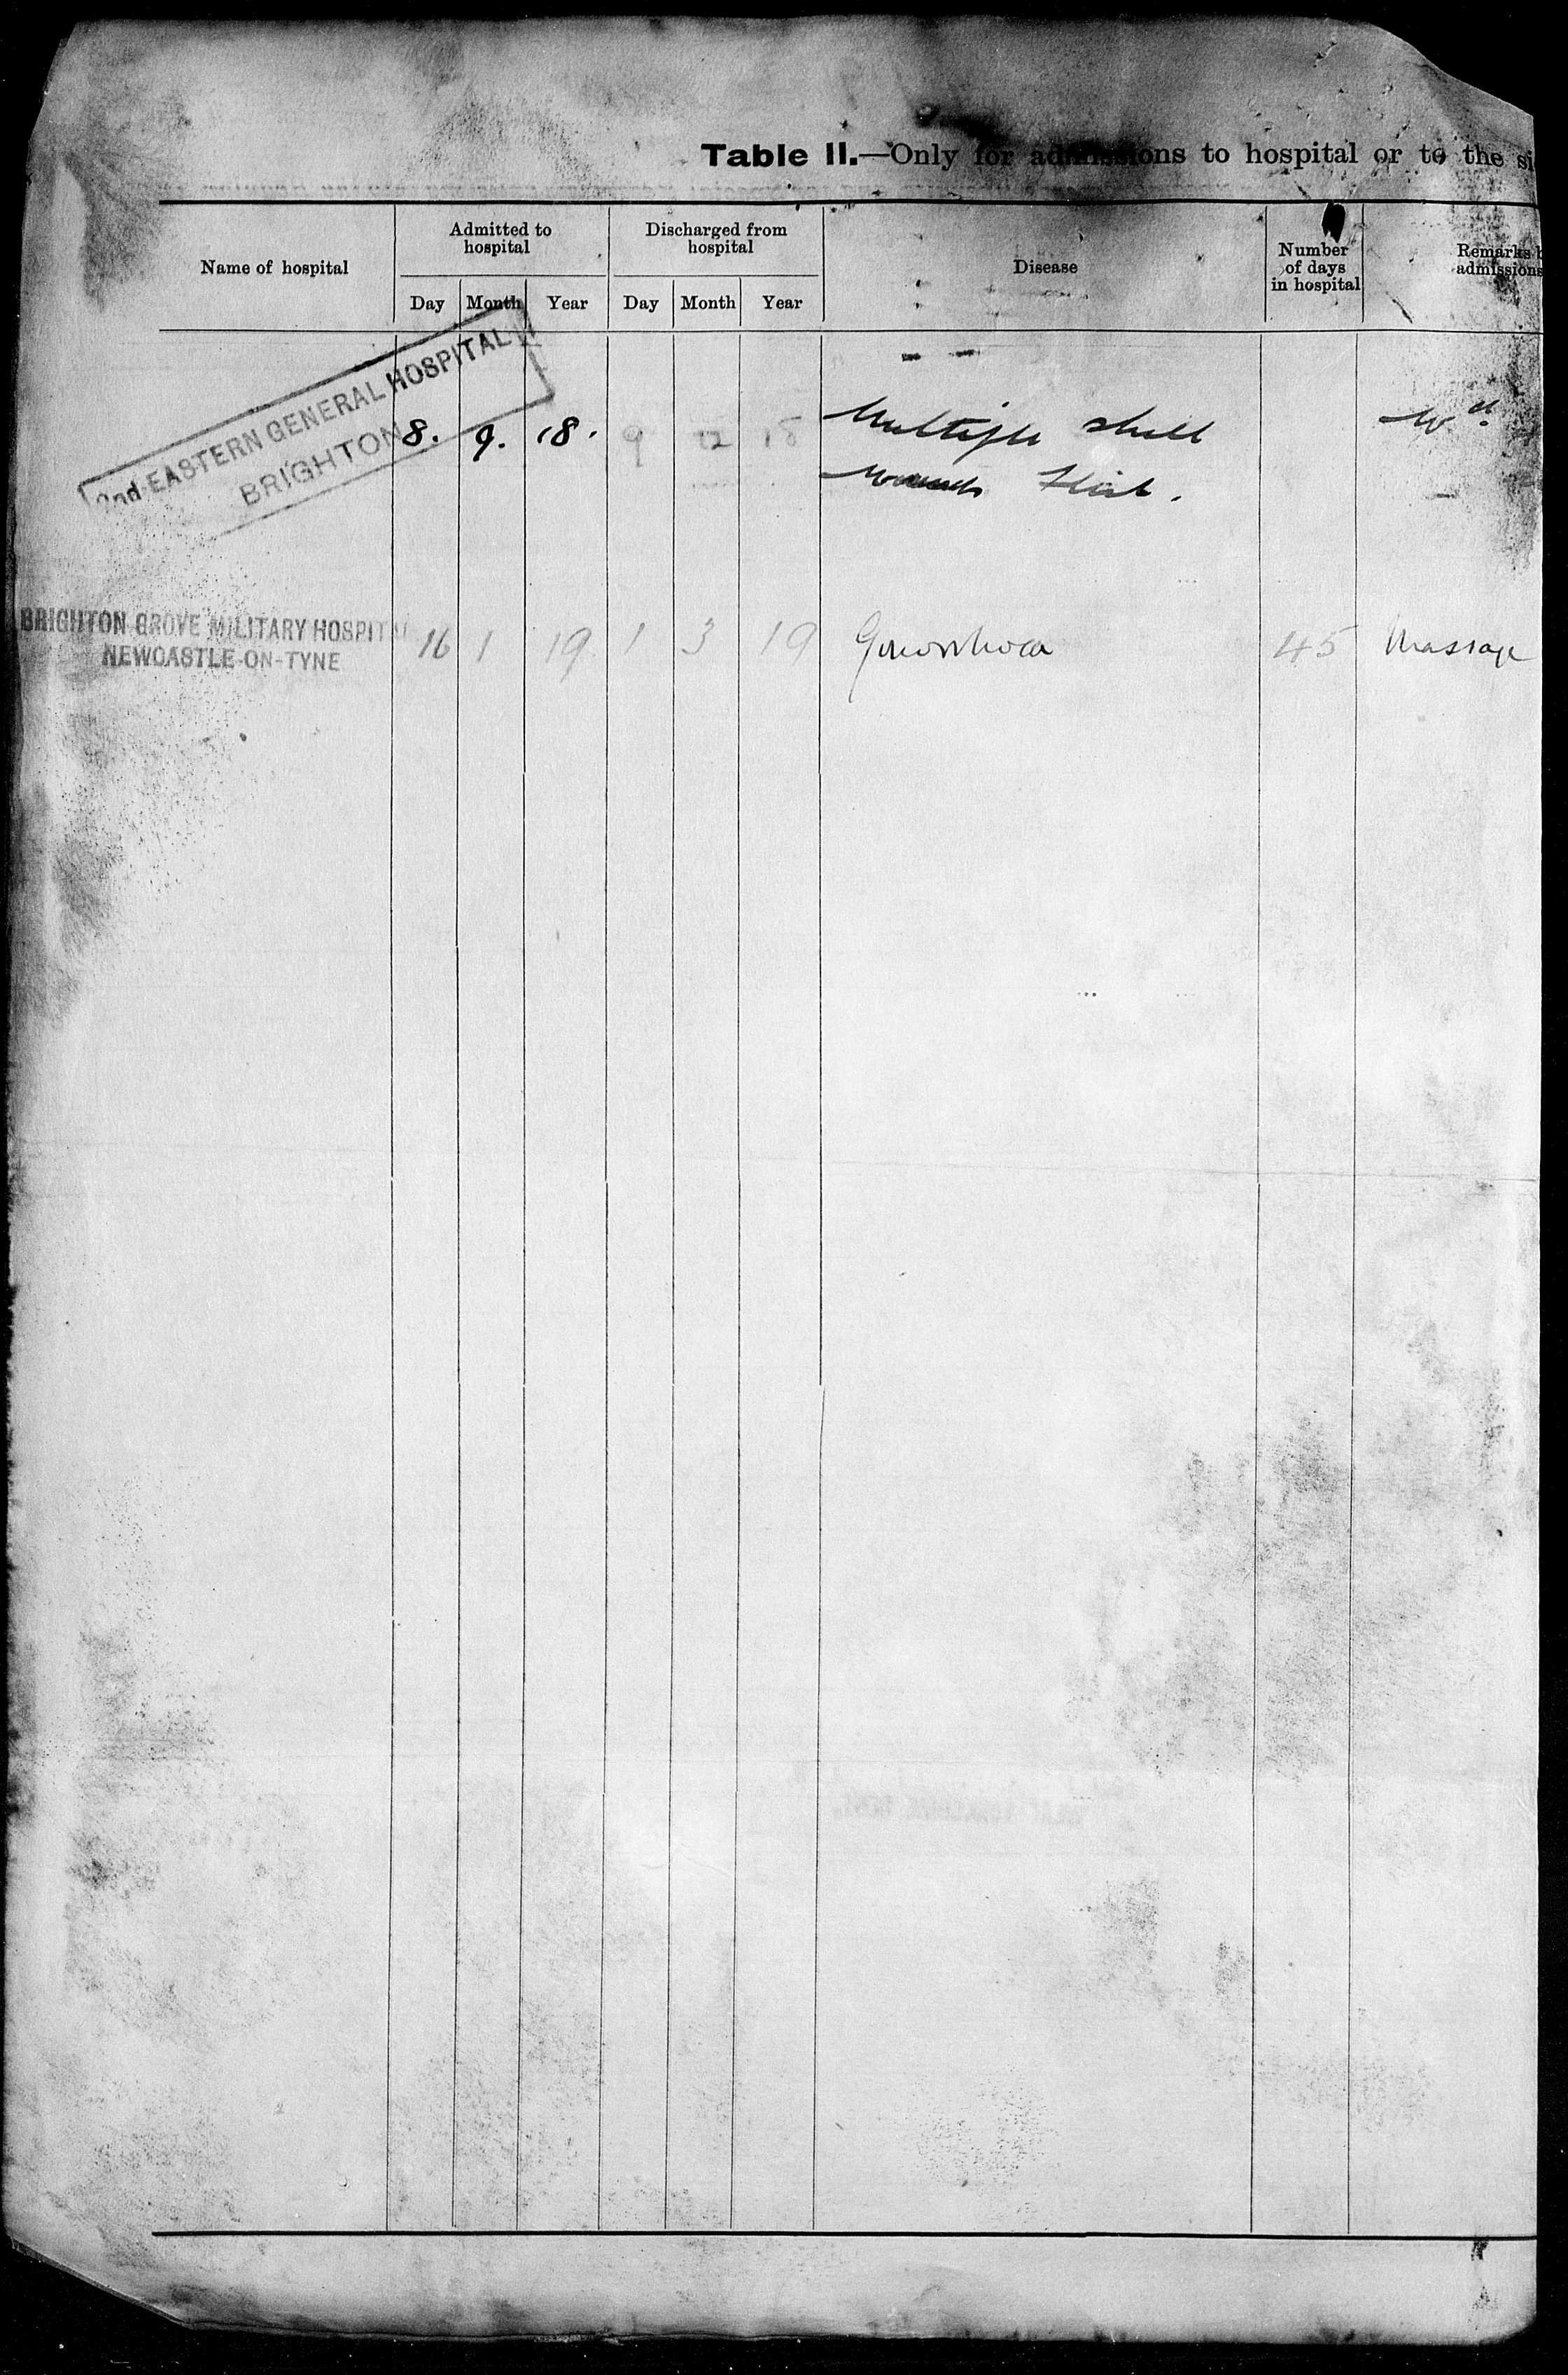 Table II.—Only for admissions to hospital or to the si
Name of hospital
Admitted to
hospital
Discharged from
hospital
Disease
Number
of days
in hospital
Remarks b
admissions
Day Month Year Day Month Year
2nd EASTERN GENERAL HOSPITAL
BRIGHTON
8. 9. 18. 9 12 18 Multiple shell
wounds
BRIGHTON GROVE MILITARY HOSPITAL
NEWCASTLE-ON-TYNE
16 1 19 1 3 19 Gonorrhoea 45 Massage